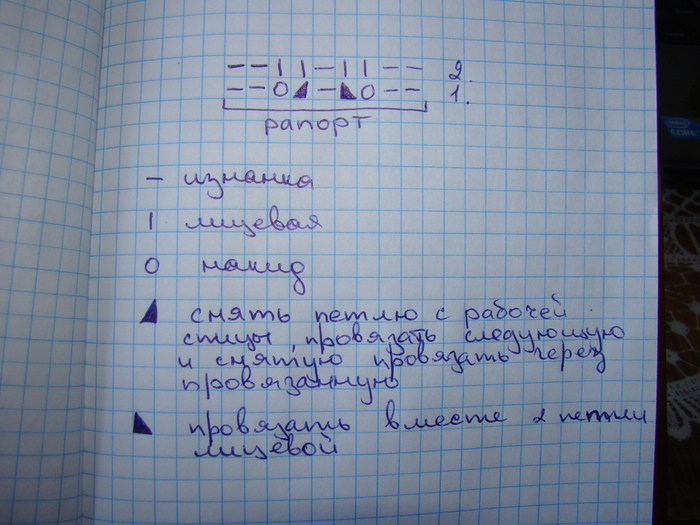 — — I I — I I — — 2.
— — O ◢ — ◣ O — — 1.
рапорт
— изнанка
I лицевая
O накид
◢ снять петлю с рабочей
спицы, провязать следующую
и снятую провязать через
провязанную
◣ провязать вместе 2 петли
лицевой
intel
CORE